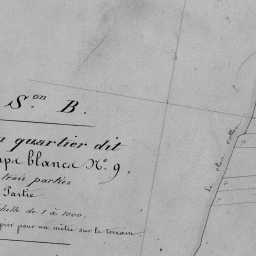 S.on B.
quartier dit
blanca N.o 9.
trois parties
Partie
de 1 à 1000.
pour un mètre sur le terrain